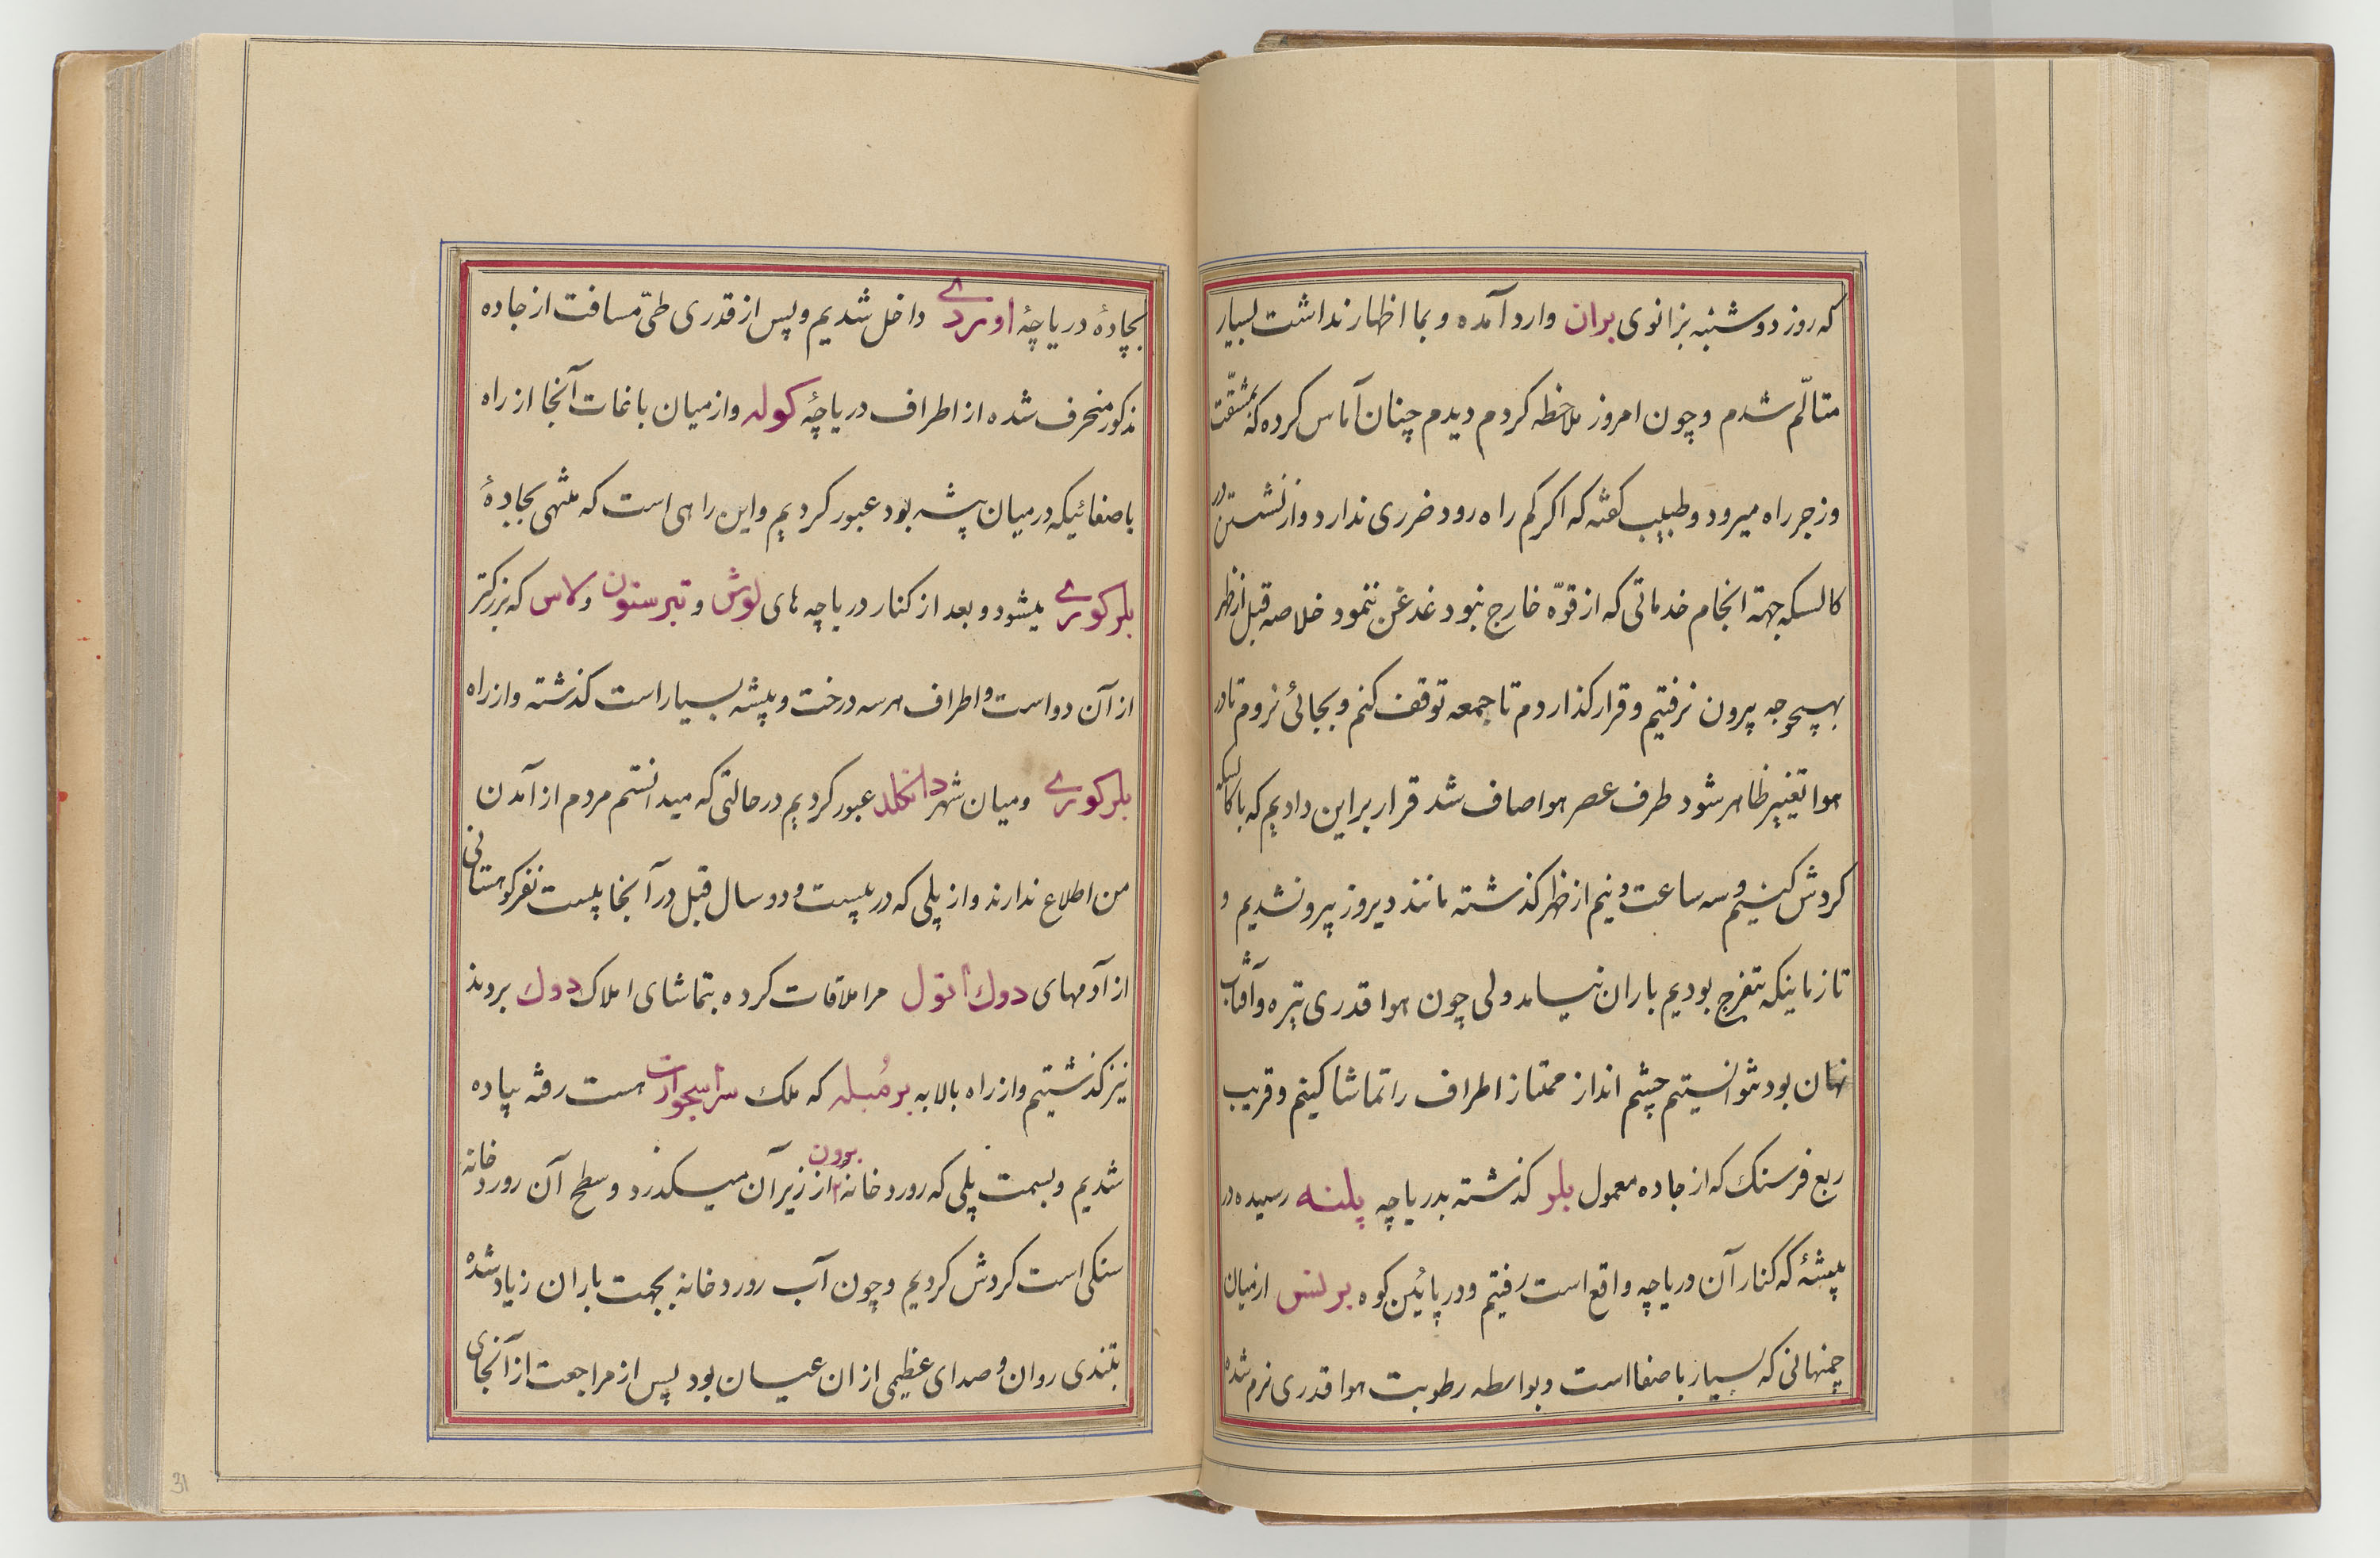 که روز دوشنبه بزانوی بران وارد آمده و بما اظهار نداشت بسیار
متألّم شدم و چون امروز ملاحظه کردم دیدم چنان آماس کرده که بمشقّت
و زجر راه میرود و طبیب کفته که اکر کم راه رود ضرری ندارد و از نشستن در
کالسکه جهته انجام خدماتی که از قوّه خارج نبود غدغن ننمود خلاصه قبل از ظهر
بهیچوجه بیرون نرفتیم و قرار کذاردم تا جمعه توقف کنم و بجائی نروم تا در
هوا تغییر ظاهر شود طرف عصر هوا صاف شد قرار براین دادیم که با کالسکه
کردش کنیم و سه ساعت و نیم از ظهر کذشته مانند دیروز بیرون شدیم و
تا زمانیکه بتفرج بودیم باران نیامد ولی چون هوا قدری تیره و آفتابش
نهان بود نتوانستیم چشم انداز ممتاز اطراف را تماشا کنیم و قریب
ربع فرسنک که از جاده معمول بلر کذشته بدریاچه پلنه رسیده در
بیشهٔ که کنار آن دریاچه واقع است رفتیم و در پائین کوه برنس از میان
چمنهائی که بسیار باصفا است و بواسطه رطوبت هوا قدری نرم شده
بجادهٔ دریاچهٔ اوردی داخل شدیم و پس از قدری طیّ مسافت از جاده
مذکور منحرف شده از اطراف دریاچهٔ کوله و از میان باغات آنجا از راه
باصفائیکه در میان بیشه بود عبور کردیم و این راهی است که منتهی بجادهٔ
بلرکوری میشود و بعد از کنار دریاچه های لوش و تبرستون و کاس که بزرکتر
از آن دو است و اطراف هرسه درخت و بیشه بسیار است کذشته و از راه
بلرکوری و میان شهر دانکلد عبور کردیم در حالتی که میدانستم مردم از آمدن
من اطلاع ندارند و از پلی که در بیست و دو سال قبل در آنجا بیست نفر کوهستانی
از آدمهای دوك أتول مرا ملاقات کرده بتماشای املاک دوك بردند
نیز کذشتیم و از راه بالا به برمبله که ملک هست رفته پیاده
شدیم و بسمت پلی که رودخانهٔ برون از زیر آن میکذرد و سطح آن رودخانه
سنکی است کردش کردیم و چون آب رودخانه بجهت باران زیاد شده
بتندی روان و صدای عظیمی از ان عیان بود پس از مراجعت از آنجای
31